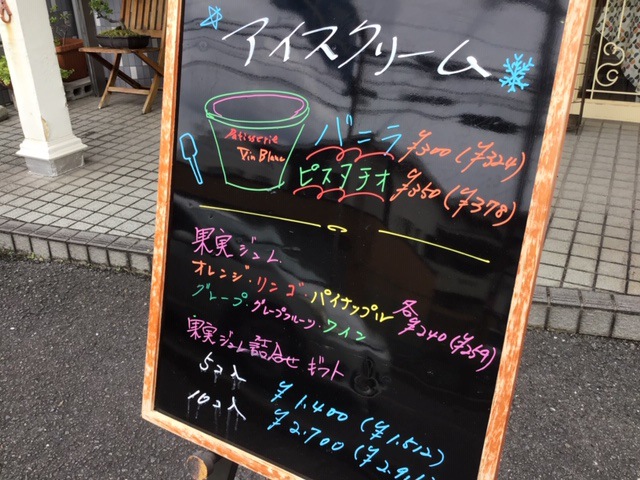 アイスクリーム
Pâtisserie
Vin Blanc
バニラ ¥300(¥324)
ピスタチオ ¥350(¥378)
果実ジュレ
オレンジ・リンゴ・パイナップル
グレープ・グレープフルーツ・ワイン
各¥240(¥259)
果実ジュレ詰合せギフト
5コ入 ¥1.400(¥1.512)
10コ入 ¥2.700(¥2.9